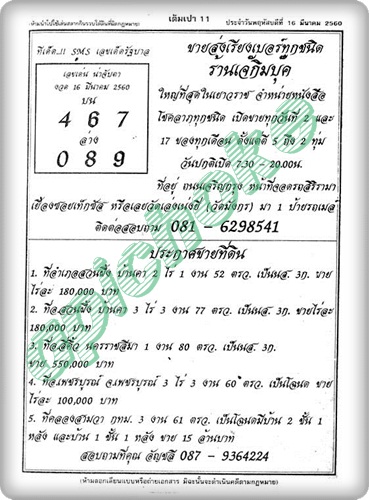 (ห้ามนำไปใช้เล่นสลากกินรวบได้ผิดที่ผิดกฎหมาย) เดิมเปา 11 ประจำวันพฤหัสบดีที่ 16 มีนาคม 2560
ทีเด็ด..!! SMS เลขเด็ดรัฐบาล
เลขเด่น น่าจับตา
งวด 16 มีนาคม 2560
บน
4 6 7
ล่าง
0 8 9
ขายส่งเรียงเบอร์ทุกชนิด
ร้านเจ๊กิมบุ๊ค
ใหญ่ที่สุดในเยาวราช จำหน่ายหนังสือ
โชคลาภทุกชนิด เปิดขายทุกวันที่ 2 และ
17 ของทุกเดือน ตั้งแต่ตี 5 ถึง 2 ทุ่ม
วันปกติเปิด 7.30 - 20.00น.
ที่อยู่ ถนนเจริญกรุง หน้าที่จอดรถสิริรามา
เยื้องซอยเท็กซัส หรือเลยวัดเล่งเน่ยยี่ (วัดมังกร) มา 1 ป้ายรถเมล์
ติดต่อสอบถาม 081 - 6298541
ประกาศขายที่ดิน
1. ที่อำเภอสวนผึ้ง บ้านคา 2 ไร่ 1 งาน 52 ตรว. เป็นนส. 3ก. ขาย
ไร่ละ 180,000 บาท
2. ที่อ.สวนผึ้ง บ้านคา 3 ไร่ 3 งาน 77 ตรว. เป็นนส. 3ก. ขายไร่ละ
180,000 บาท
3. ที่อ.สีคิ้ว นครราชสีมา 1 งาน 80 ตรว. เป็นนส. 3ก.
ขาย 550,000 บาท
4. ที่อ.เพชรบูรณ์ จ.เพชรบูรณ์ 3 ไร่ 3 งาน 60 ตรว. เป็นโฉนด ขาย
ไร่ละ 100,000 บาท
5. ที่คลองสามวา กทม. 3 งาน 61 ตรว. เป็นโฉนดมีบ้าน 2 ชั้น 1
หลัง และบ้าน 1 ชั้น 1 หลัง ขาย 15 ล้านบาท
สอบถามที่คุณ อัญชลี 087 - 9364224
(ห้ามลอกเลียนแบบหรือถ่ายเอกสาร มิฉะนั้นจะดำเนินคดีตามกฎหมาย)